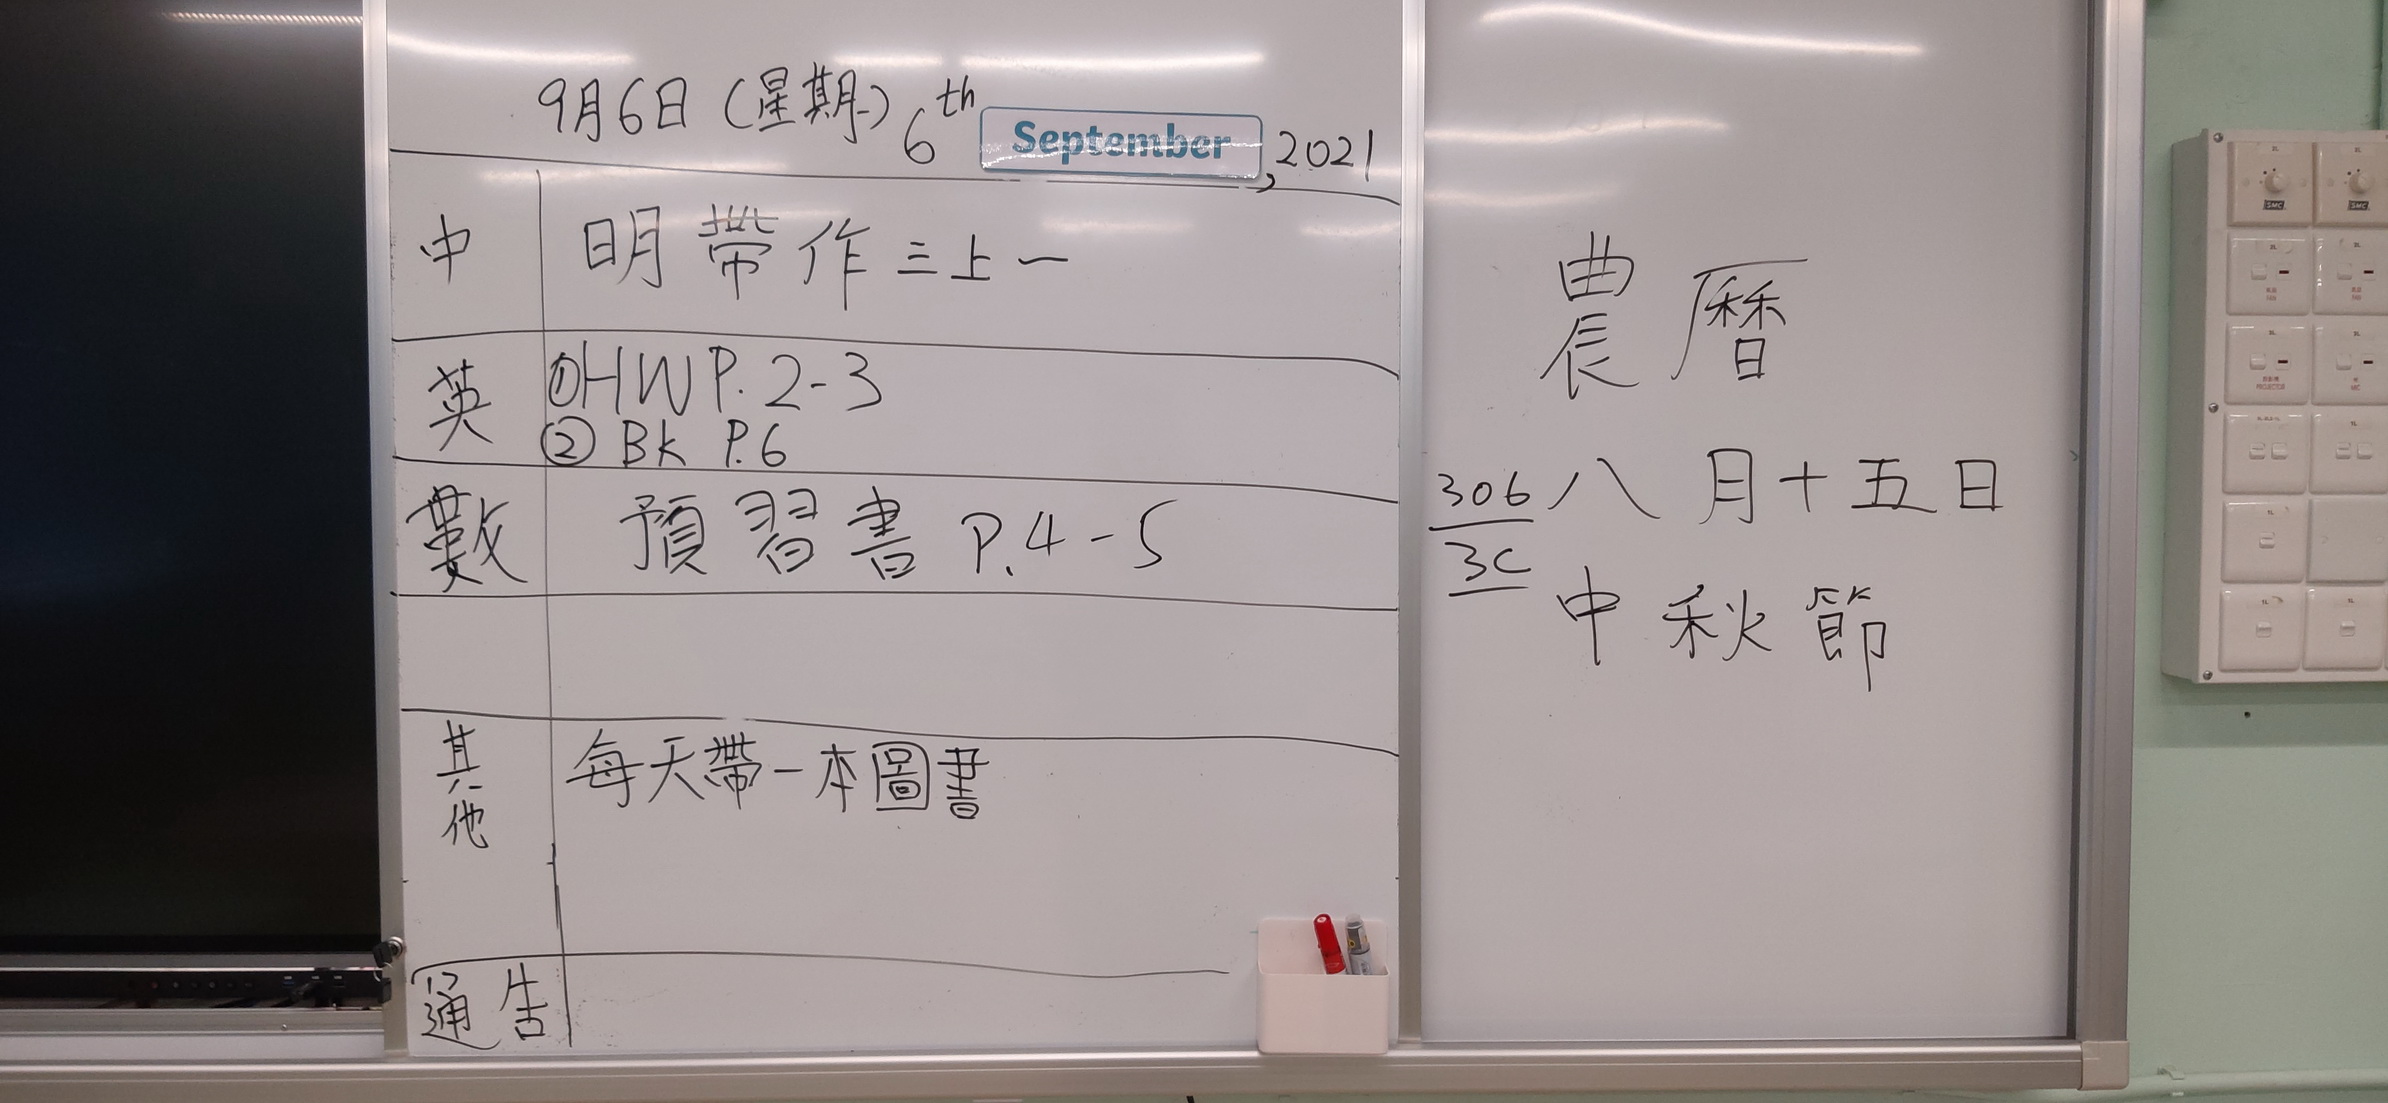 9月6日(星期 ) 6th September, 2021
中 明帶作三上一
英 ①HW P.2-3
② BK P.6
數 預習書 P.4-5
其他 每天帶一本圖書
通告
農曆
306 八月十五日
3C
中秋節